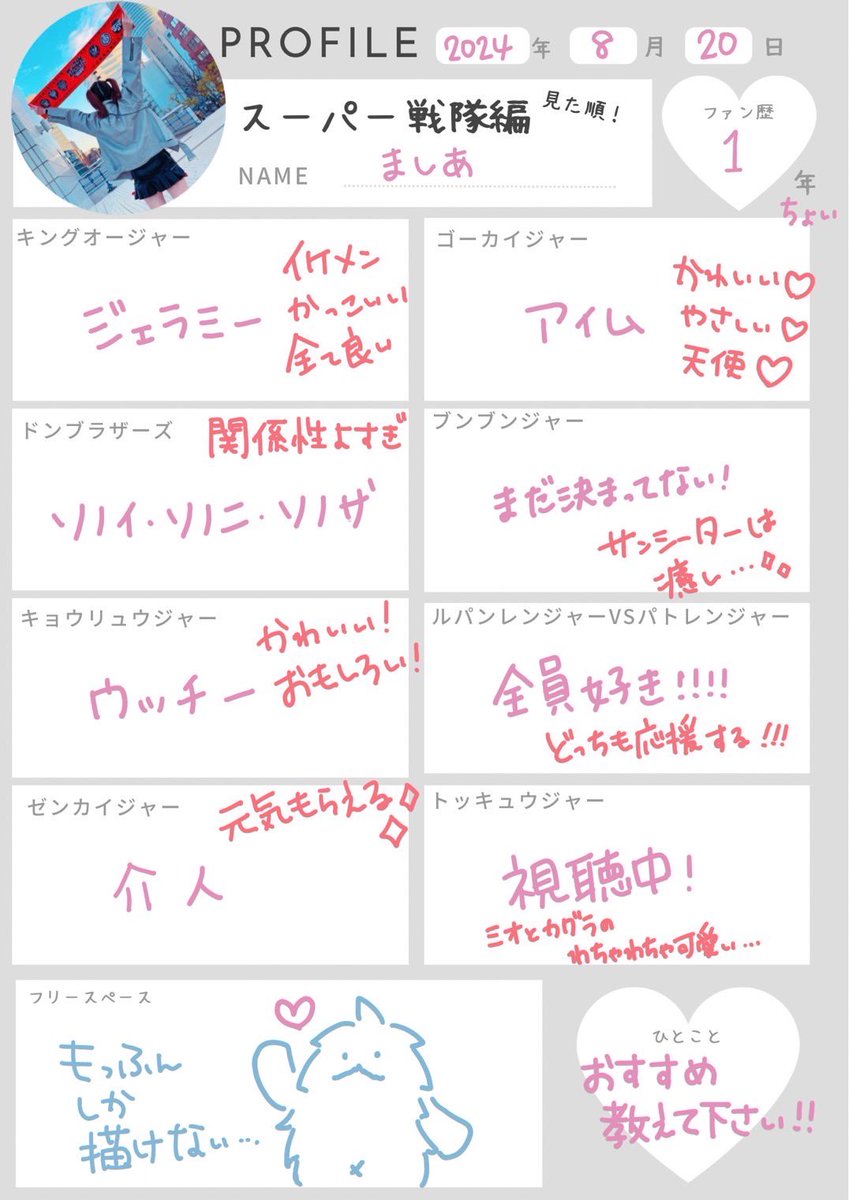 PROFILE 2024 年 8 月 20 日
スーパー戦隊編 見た順!
NAME ましあ
ファン歴
1
年
ちょい
キングオージャー
ジェラミー
イケメン
かっこいい
全て良い
ゴーカイジャー
アイム
かわいい♡
やさしい♡
天使♡
ドンブラザーズ
関係性よすぎ
ソノイ・ソノニ・ソノザ
ブンブンジャー
まだ決まってない!
サンシーターは
癒し…
キョウリュウジャー
かわいい!
おもしろい!
ウッチー
ルパンレンジャーVSパトレンジャー
全員好き!!!!
どっちも応援する!!!
ゼンカイジャー
元気もらえる
介人
トッキュウジャー
視聴中!
ミオとカグラの
わちゃわちゃ可愛い…
フリースペース
もっふん
しか
描けない…
ひとこと
おすすめ
教えて下さい!!